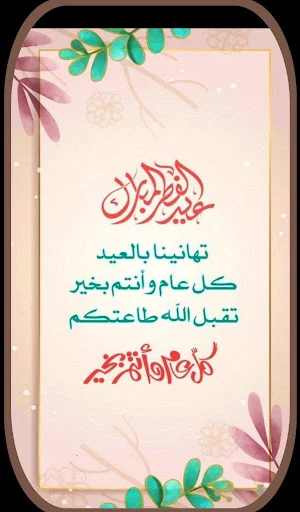 عيد الفطر المبارك
تهانينا بالعيد
كل عام وأنتم بخير
تقبل الله طاعتكم
كل عام وأنتم بخير